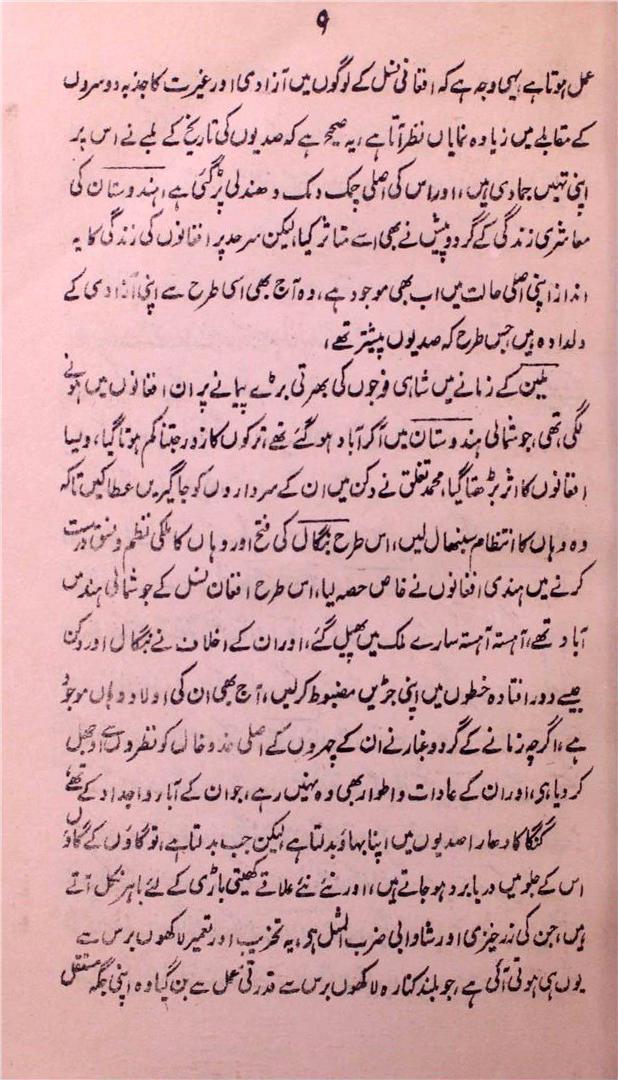 ۹
عمل ہوتا ہے، یہی وجہ ہے کہ افغانی نسل کے لوگوں میں آزادی اور غیرت کا جذبہ دوسروں
کے مقابلے میں زیادہ نمایاں نظر آتا ہے، یہ صحیح ہے کہ صدیوں کی تاریخ کے ملبے نے اس پر
اپنی تہیں جما دی ہیں، اور اس کی اصلی چمک دمک دھندلی پڑ گئی ہے، ہندوستان کی
معاشری زندگی کے گرد و پیش نے بھی اسے متاثر کیا، لیکن سرحد پر افغانوں کی زندگی کا یہ
انداز اپنی اصلی حالت میں اب بھی موجود ہے، وہ آج بھی اسی طرح سے اپنی آزادی کے
دلدادہ ہیں جس طرح کہ صدیوں پیشتر تھے،
بلبن کے زمانے میں شاہی فوجوں کی بھرتی بڑے پیمانے پر ان افغانوں میں ہونے
لگی تھی، جو شمالی ہندوستان میں آکر آباد ہوگئے تھے، ترکوں کا زور جتنا کم ہوتا گیا، ویسا
افغانوں کا اثر بڑھتا گیا، محمد تغلق نے دکن میں ان کے سرداروں کو جاگیریں عطا کیں تاکہ
وہ وہاں کا انتظام سنبھال لیں، اس طرح بنگال کی فتح اور وہاں کا ملکی نظم و نسق درست
کرنے میں ہندی افغانوں نے خاص حصہ لیا، اس طرح افغان نسل کے جو شمالی ہند میں
آباد تھے، آہستہ آہستہ سارے ملک میں پھیل گئے، اور ان کے اخلاف نے بنگال اور دکن
جیسے دور افتادہ خطوں میں اپنی جڑیں مضبوط کرلیں، آج بھی ان کی اولاد وہاں موجود
ہے، اگرچہ زمانے کے گرد و غبار نے ان کے چہروں کے اصلی خد و خال کو نظروں سے اوجھل
کر دیا ہی، اور ان کے عادات و اطوار بھی وہ نہیں رہے، جو ان کے آبا و اجداد کے تھے،
گنگا کا دھارا صدیوں میں اپنا بہاؤ بدلتا ہے، لیکن جب بدلتا ہے، تو گاؤں کے گاؤں
اس کے جلو میں دریا برد ہوجاتے ہیں، اور نئے نئے علاقے کھیتی باڑی کے لئے باہر نکل آتے
ہیں، جن کی زرخیزی اور شادابی ضرب المثل ہی، یہ تخریب اور تعمیر لاکھوں برس سے
یوں ہی ہوتی آئی ہے، جو بلند کنارہ لاکھوں برس سے قدرتی عمل سے بن گیا وہ اپنی جگہ مستقل